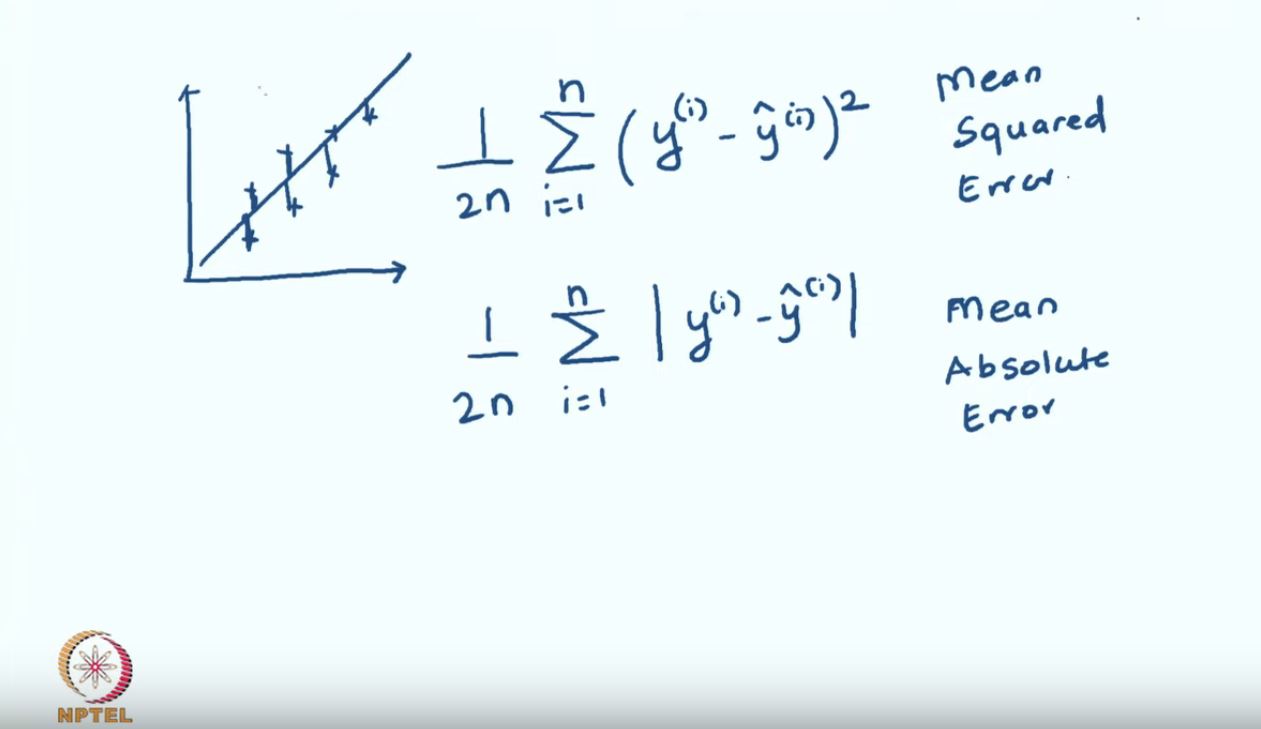 1/2n n∑i=1 (y⁽ⁱ⁾ - ŷ⁽ⁱ⁾)²
Mean
Squared
Error.
1/2n n∑i=1 |y⁽ⁱ⁾ - ŷ⁽ⁱ⁾|
Mean
Absolute
Error
NPTEL